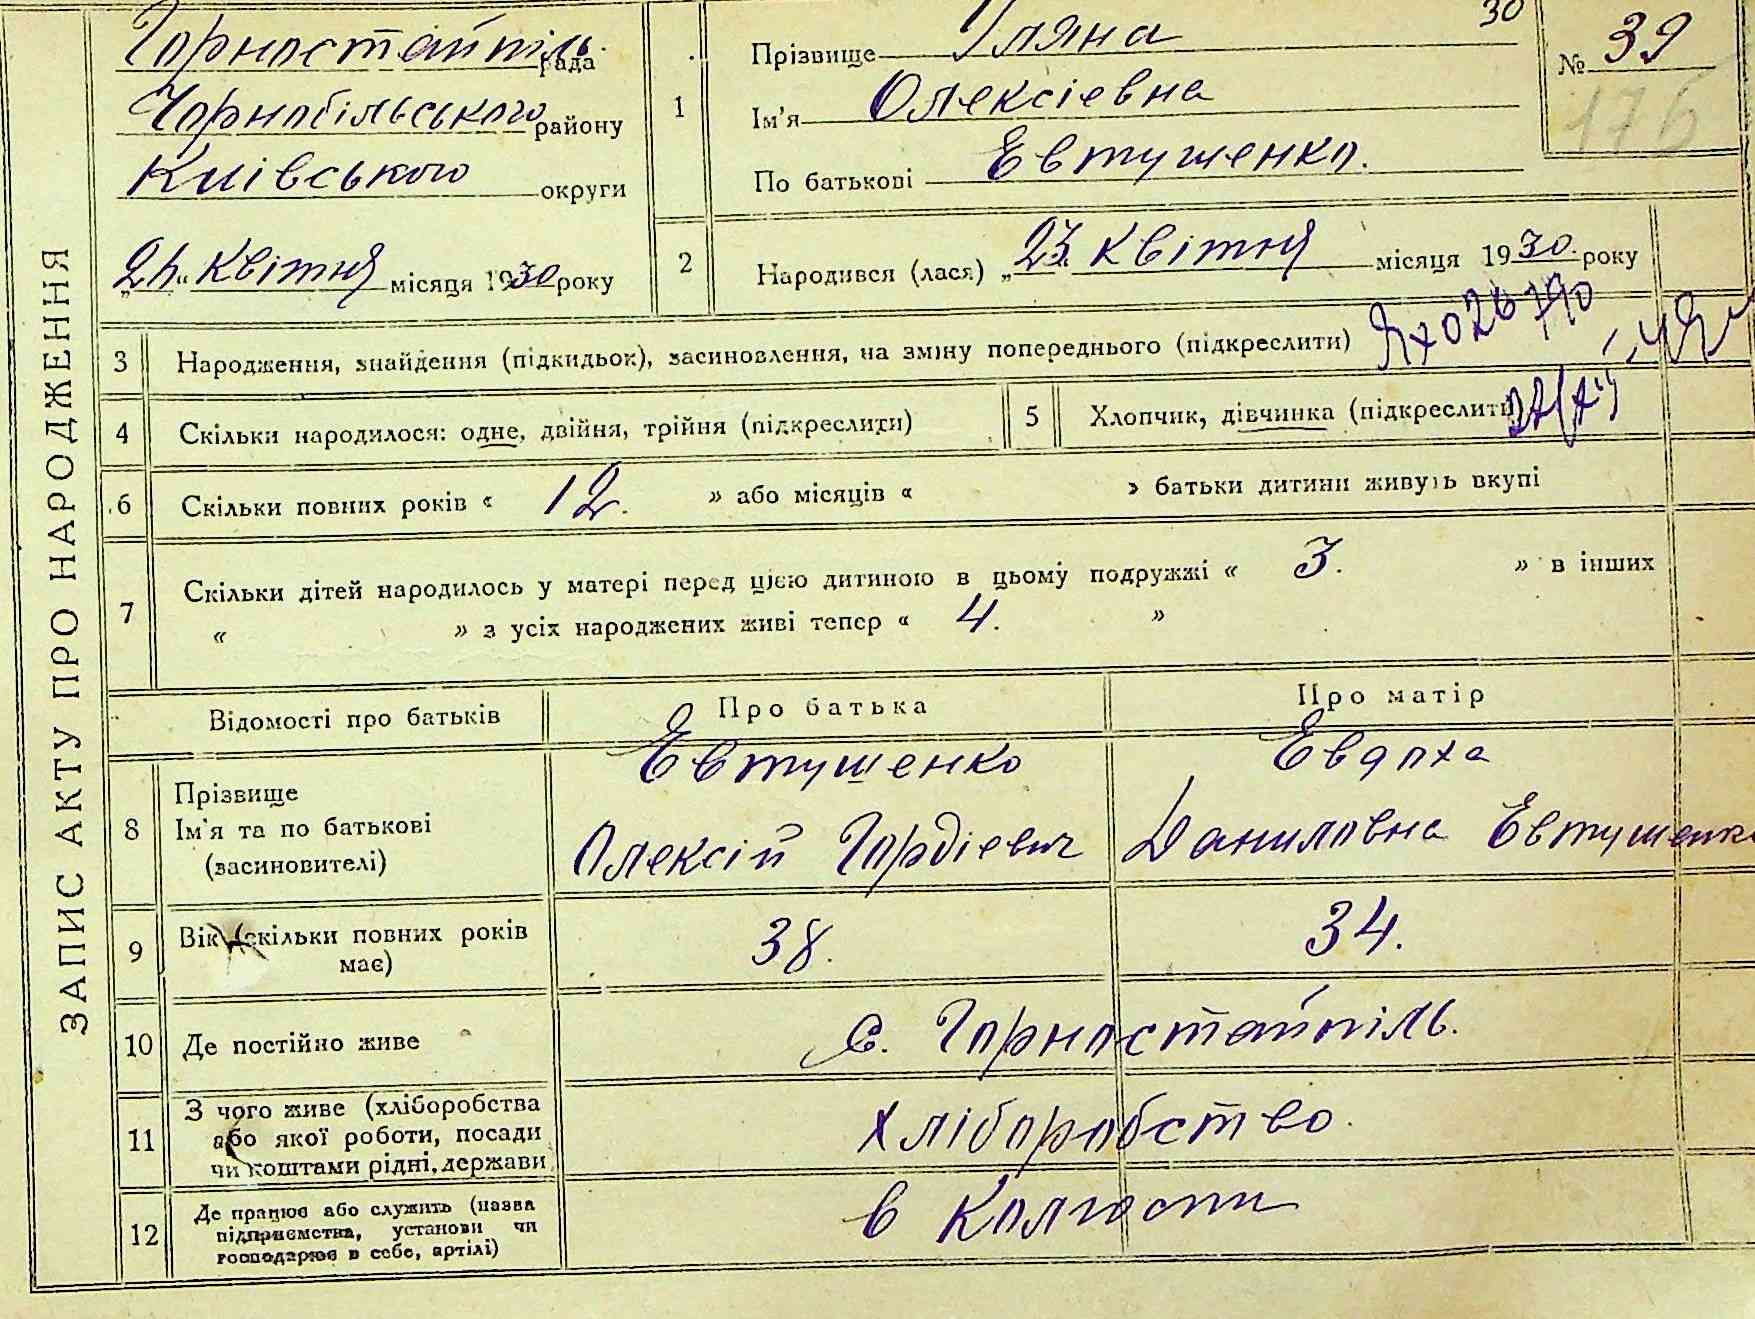 ЗАПИС АКТУ ПРО НАРОДЖЕННЯ
Горностайпіль рада
Чорнобільського району
Київського округи
„24“ квітня місяця 1930 року
1
Прізвище Уляна 30
Ім'я Олексіевна
По батькові Евтушенко.
№ 39
176
2
Народився (лася) „23“ квітня місяця 1930 року
3 Народження, знайдення (підкидьок), засиновлення, на зміну попереднього (підкреслити)
4 Скільки народилося: одне, двійня, трійня (підкреслити)
5 Хлопчик, дівчинка (підкреслити)
6 Скільки повних років « 12. » або місяців « » батьки дитини живуть вкупі
7 Скільки дітей народилось у матері перед цією дитиною в цьому подружжі « 3. » в інших
« » з усіх народжених живі тепер « 4. »
Відомості про батьків Про батька Про матір
8 Прізвище
Ім'я та по батькові
(засиновителі)
Евтушенко
Олексій Гордіевич
Евдоха
Даниловна Евтушенко
9 Вік (скільки повних років
має)
38. 34.
10 Де постійно живе с. Горностайпіль.
11 З чого живе (хліборобства
або якої роботи, посади
чи коштами рідні, держави
хліборобство.
12 Де працює або служить (назва
підприємства, установи чи
господарює в себе, артілі)
в колгоспи